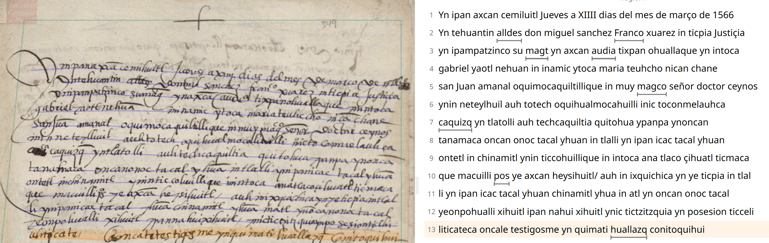 1 Yn ipan axcan cemiluitl Jueves a XIIII dias del mes de março de 1566
2 Yn tehuantin alldes don miguel sanchez Franco xuarez in ticpia Justiçia
3 yn ipampatzinco su magt yn axcan audia tixpan ohuallaque yn intoca
4 gabriel yaotl nehuan in inamic ytoca maria teuhcho nican chane
5 san Juan amanal oquimocaquiltillique in muy magco señor doctor ceynos
6 ynin neteylhuil auh totech oquihualmocahuilli inic toconmelauhca
7 caquizq yn tlatolli auh techcaquiltia quitohua ypanpa ynoncan
8 tanamaca oncan onoc tacal yhuan in tlalli yn ipan icac tacal yhuan
9 ontetl in chinamitl ynin ticcohuillique in intoca ana tlaco çihuatl ticmaca
10 que macuilli pos ye axcan heysihuitl/ auh in ixquichica yn ye ticpia in tlal
11 li yn ipan icac tacal yhuan chinamitl yhua in atl yn oncan onoc tacal
12 yeonpohualli xihuitl ipan nahui xihuitl ynic tictzitzquia yn posesion ticceli
13 liticateca oncale testigosme yn quimati huallazq conitoquihui